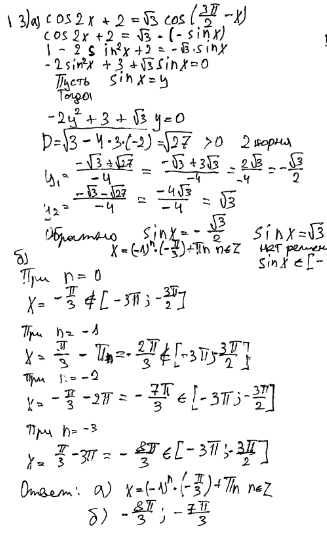 13) а) cos2x + 2 = √3 cos(3π/2 - x)
cos2x + 2 = √3 · (-sinx)
1 - 2sin²x + 2 = -√3 · sinx
-2sin²x + 3 + √3 sinx = 0
Пусть sinx = y
Тогда
-2y² + 3 + √3 y = 0
D = √3 - 4·3·(-2) = √27 > 0 2 корня
y₁ = (-√3 + √27)/-4 = (-√3 + 3√3)/-4 = 2√3/-4 = -√3/2
y₂ = (-√3 - √27)/-4 = -4√3/-4 = √3
Обратно sinx = -√3/2 sinx = √3
x = (-1)ⁿ · (-π/3) + πn n∈Z нет решени
sinx ∈ [-
б)
При n = 0
x = -π/3 ∉ [-3π; -3π/2]
При n = -1
x = π/3 - π = -2π/3 ∉ [-3π; -3π/2]
При n = -2
x = -π/3 - 2π = -7π/3 ∈ [-3π; -3π/2]
При n = -3
x = π/3 - 3π = -8π/3 ∈ [-3π; -3π/2]
Ответ: а) x = (-1)ⁿ · (-π/3) + πn n∈Z
б) -8π/3; -7π/3